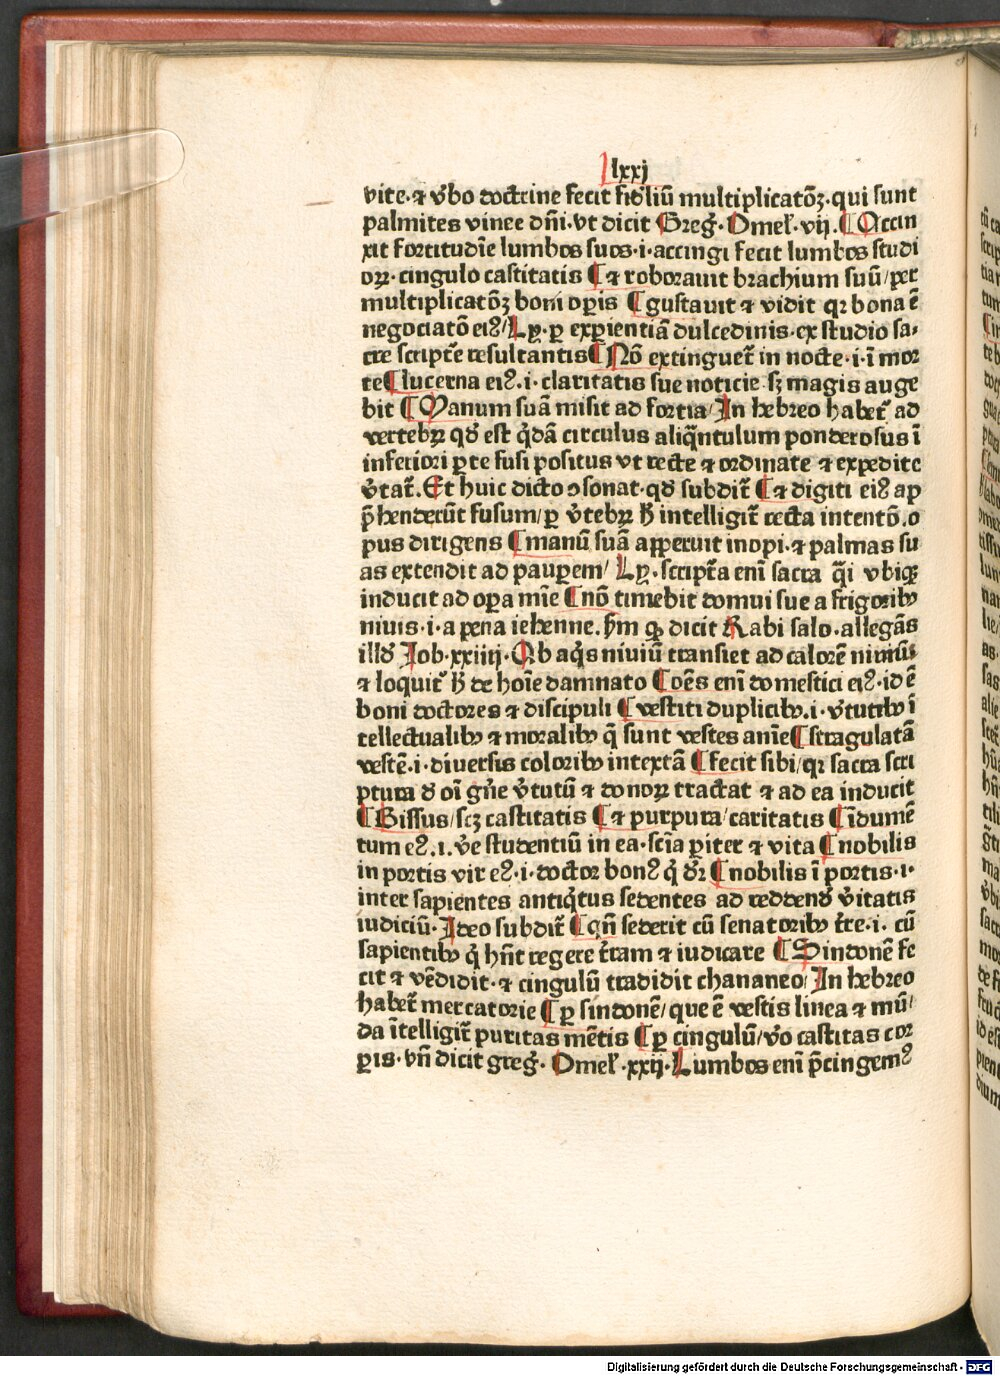 lxxj
vite·⁊ v̄bo doctrine fecit fideliū multiplicatōꝫ·qui sunt
palmites vinee dn̄i·vt dicit Greg̃·Omel̓·vij·¶Accin
xit fortitudīe lumbos suos·i·accingi fecit lumbos studi
oꝝ·cingulo castitatis ¶⁊ roborauit brachium suū/per
multiplicatōꝫ boni oꝑis ¶gustauit ⁊ vidit qꝛ bona ē
negociatō eiꝰ/Ly̵·ꝑ exꝑientiā dulcedinis·ex studio sa⸗
cre scripte̓ resultantis¶Nō extinguet̃ in nocte·i·ī mor
te¶lucerna eiꝰ.i·claritatis sue noticie sꝫ magis auge
bit ¶Manum suā misit ad fortia/In hebreo habet̃ ad
vertebꝝ qd̓ est q̄dā circulus aliq̄ntulum ponderosus ī
inferiori ꝑte fusi positus vt recte ⁊ ordinate ⁊ expedite
v̓tat̃.Et huic dicto ꝯsonat·qd̓ subdit̃ ¶⁊ digiti eiꝰ ap
p̄henderūt fusum/ꝑ v̓tebꝝ h̓ intelligit̃ recta intentō.o
pus dirigens ¶manū suā apperuit inopi·⁊ palmas su
as extendit ad pauꝑem/ Ly̵·scripta̓ enī sacra q̄i vbiqꝫ
inducit ad oꝑa mīe ¶nō timebit domui sue a frigoribꝰ
niuis·i·a pena iehenne.ẜm qꝙ dicit Rabi salo·allegās
illd̓ Job·xxiiij·Ab aq̓s niuiū transiet ad calorē nimiū·
⁊ loquit̃ h̓ de hoīe damnato ¶oēs enī domestici eiꝰ·id ē
boni doctores ⁊ discipuli ¶vestiti duplicibꝰ.i·v̓tutibꝰ ī
tellectualibꝰ ⁊ moralibꝰ q̄ sunt vestes anīe¶stragulatā
vestē·i·diuersis coloribꝰ intextā ¶fecit sibi/qꝛ sacra scri
ptura d̓ oī gn̄e v̓tutū ⁊ donoꝝ tractat ⁊ ad ea inducit
¶Bissus/scꝫ castitatis ¶⁊ purpura/caritatis ¶īdumē
tum eꝰ.i.v̓e studentiū in ea·scīa ꝑiter ⁊ vita ¶nobilis
in portis vir eꝰ·i·doctor bonꝰ q̓ dr̄ ¶nobilis ī portis·i·
inter sapientes antiq̓tus sedentes ad reddend̓ v̓itatis
iudiciū·Ideo subdit̃ ¶qn̄ sederit cū senatoribꝰ t̓re.i. cū
sapientibꝰ q̓ hn̄t regere t̓ram ⁊ iudicare ¶Sindonē fe
cit ⁊ vēdidit·⁊ cingulū tradidit chananeo/In hebreo
habet̃ mercatorie ¶ꝑ sindonē/que ē vestis linea ⁊ mū/
da ītelligit̃ puritas mētis ¶ꝑ cingulū/v̓o castitas cor
ꝑis·vn̄ dicit greg̃·Omel̓·xxij·Lumbos enī p̄cingemꝰ